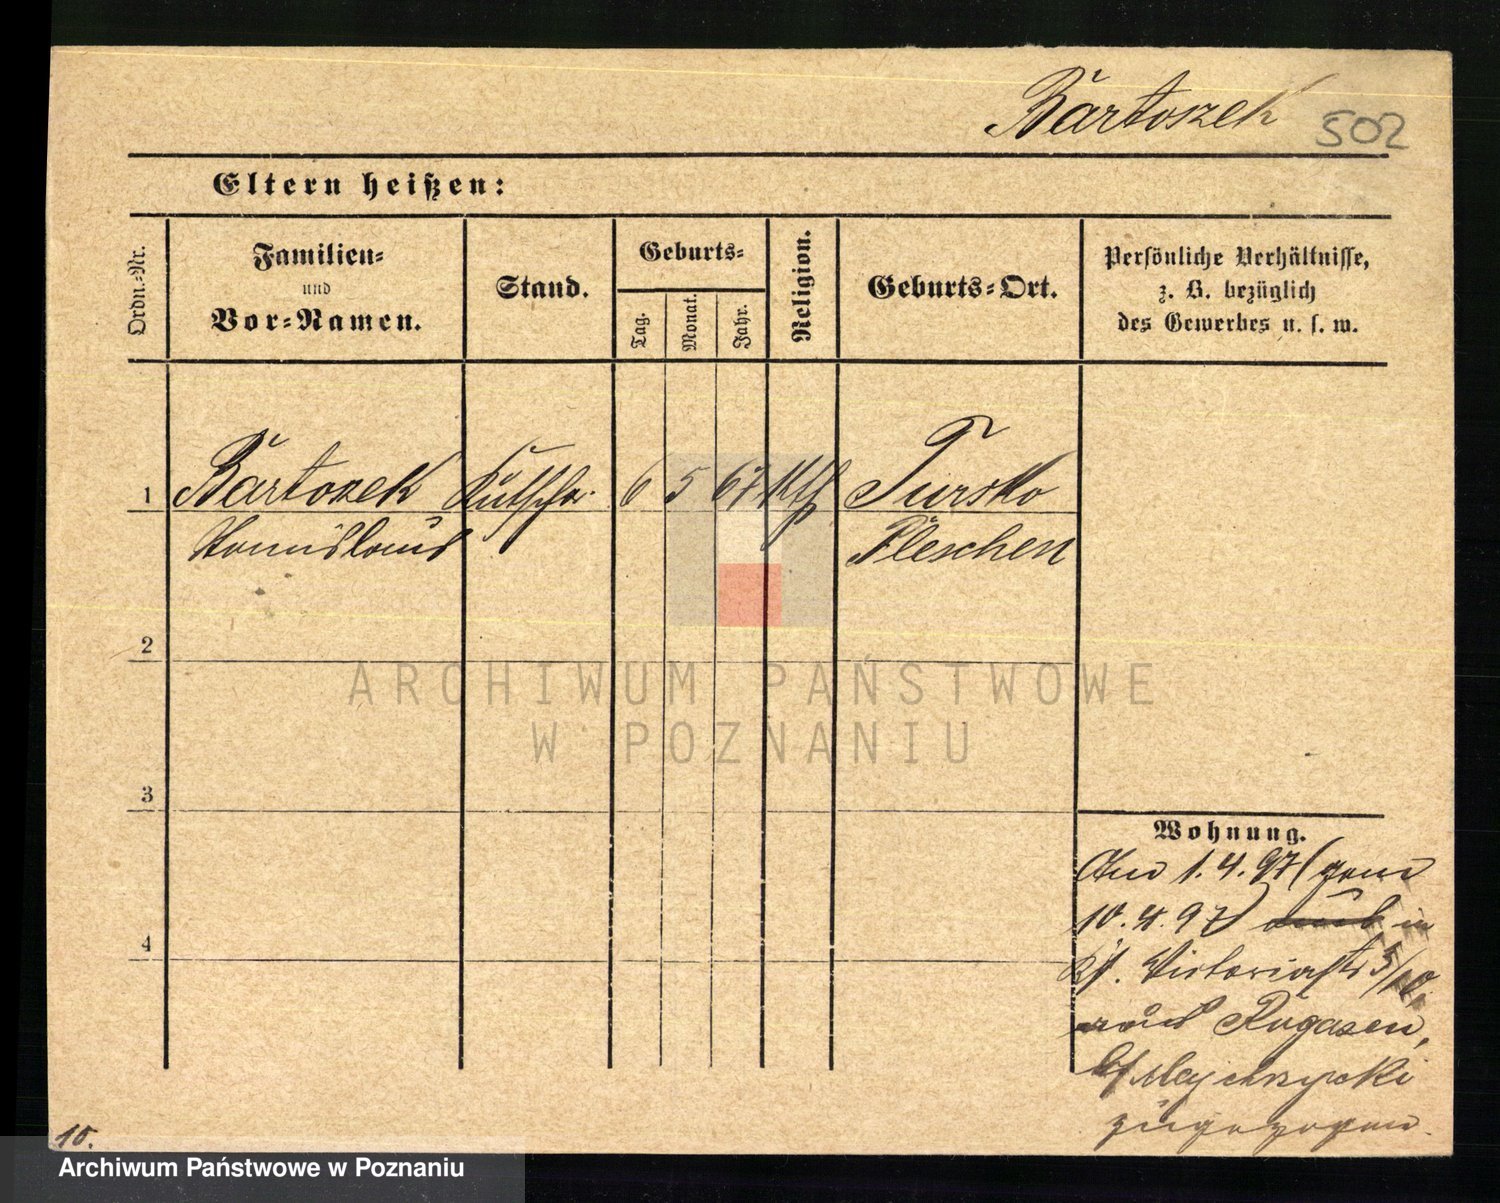 Bartoszek 502
Eltern heißen:
Ordn.-Nr.
Familien-
und
Vor-Namen.
Stand.
Geburts-
Tag.
Monat.
Jahr.
Religion.
Geburts-Ort.
Persönliche Verhältnisse,
z. B. bezüglich
des Gewerbes u. s. w.
1 Bartoszek Kutscher 6 5 67 Kth Tursko
Stanislaus Pleschen
2
ARCHIWUM PAŃSTWOWE
W POZNANIU
3
Wohnung.
Am 1.4.97 (gem
10.4.97) in
Victoriastr 5/10
aus Rogasen,
zugezogen.
4
10.
Archiwum Państwowe w Poznaniu